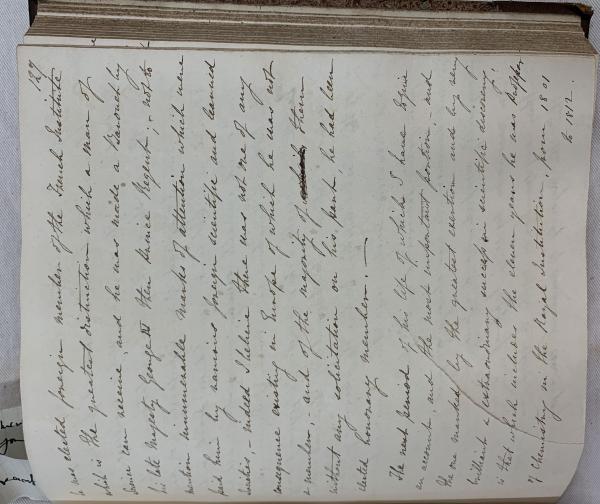 129
he was elected foreign member of the French Institute
which is the greatest distinction which a man of
Science can receive, and he was made a Baronet by
his late Majesty George IV then Prince Regent; & not to
mention innumerable marks of attention which were
paid him by various foreign scientific and learned
societies,- indeed I believe there was not one of any
consequence existing in Europe of which he was not
a member,- and of the majority of them
without any solicitation on his part, he had been
elected honorary member.-
The next period of his life of which I have to give
an account and the most important portion,- and
the one marked by the greatest exertion and by very
brilliant & extraordinary success in scientific discovery,
is that which includes the eleven years he was Professor
of Chemistry in the Royal Institution, from 1801
to 1812.